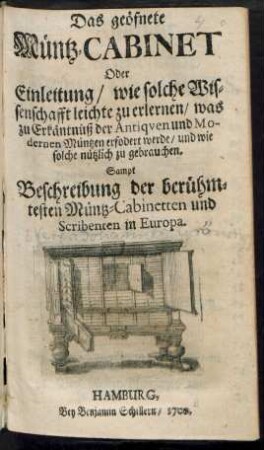 Das geöfnete
Müntz-CABINET
Oder
Einleitung/ wie solche Wis-
senschafft leichte zu erlernen/ was
zu Erkäntnüß der Antiqven und Mo-
dernen Müntzen erfodert werde/ und wie
solche nützlich zu gebrauchen.
Sampt
Beschreibung der berühm-
testen Müntz-Cabinetten und
Scribenten in Europa.
HAMBURG,
Bey Benjamin Schillern/ 1700.